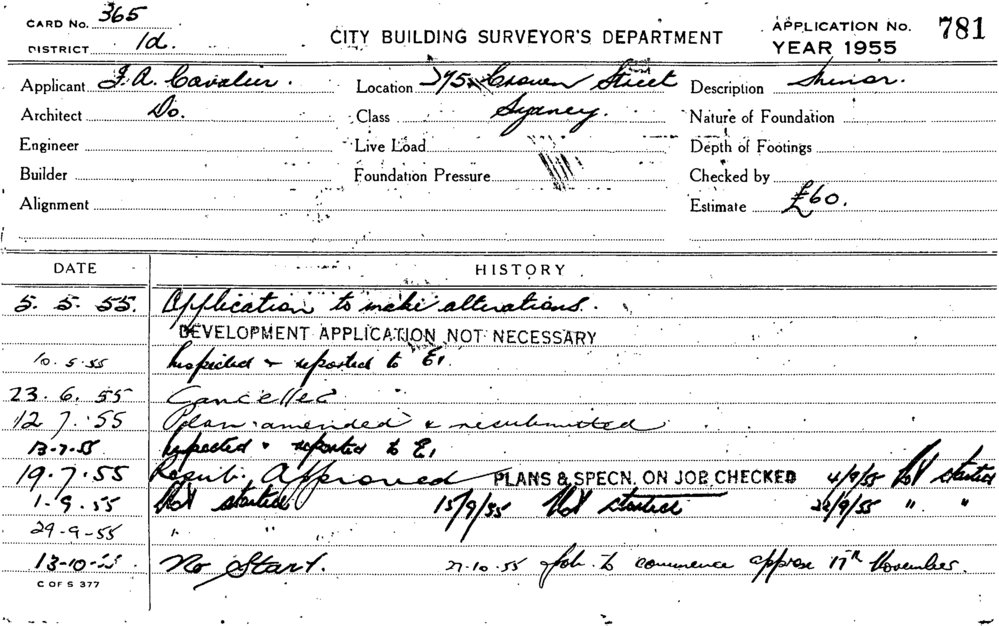 CARD No. 365
DISTRICT 1d.
CITY BUILDING SURVEYOR'S DEPARTMENT
APPLICATION No. 781
YEAR 1955
Applicant J. A. Cavalier. Location 375 Crown Street Description Minor.
Architect Do. Class Sydney. Nature of Foundation
Engineer Live Load Depth of Footings
Builder Foundation Pressure Checked by
Alignment Estimate £60.
DATE HISTORY
5. 5. 55. Application to make alterations.
DEVELOPMENT APPLICATION NOT NECESSARY
10.5.55 Inspected & reported to E,
23. 6. 55 Cancelled
12 7. 55 Plan amended & resubmitted
13-7-55 Inspected & reported to E,
19.7.55 Resub. Approved PLANS & SPECN. ON JOB CHECKED 4/8/55 Not started
1.9.55 Not started 15/9/55 Not started 22/9/55 " "
29-9-55 " "
13-10-55 No Start. 27-10-55 Job to commence approx 17th November.
C OF S 377